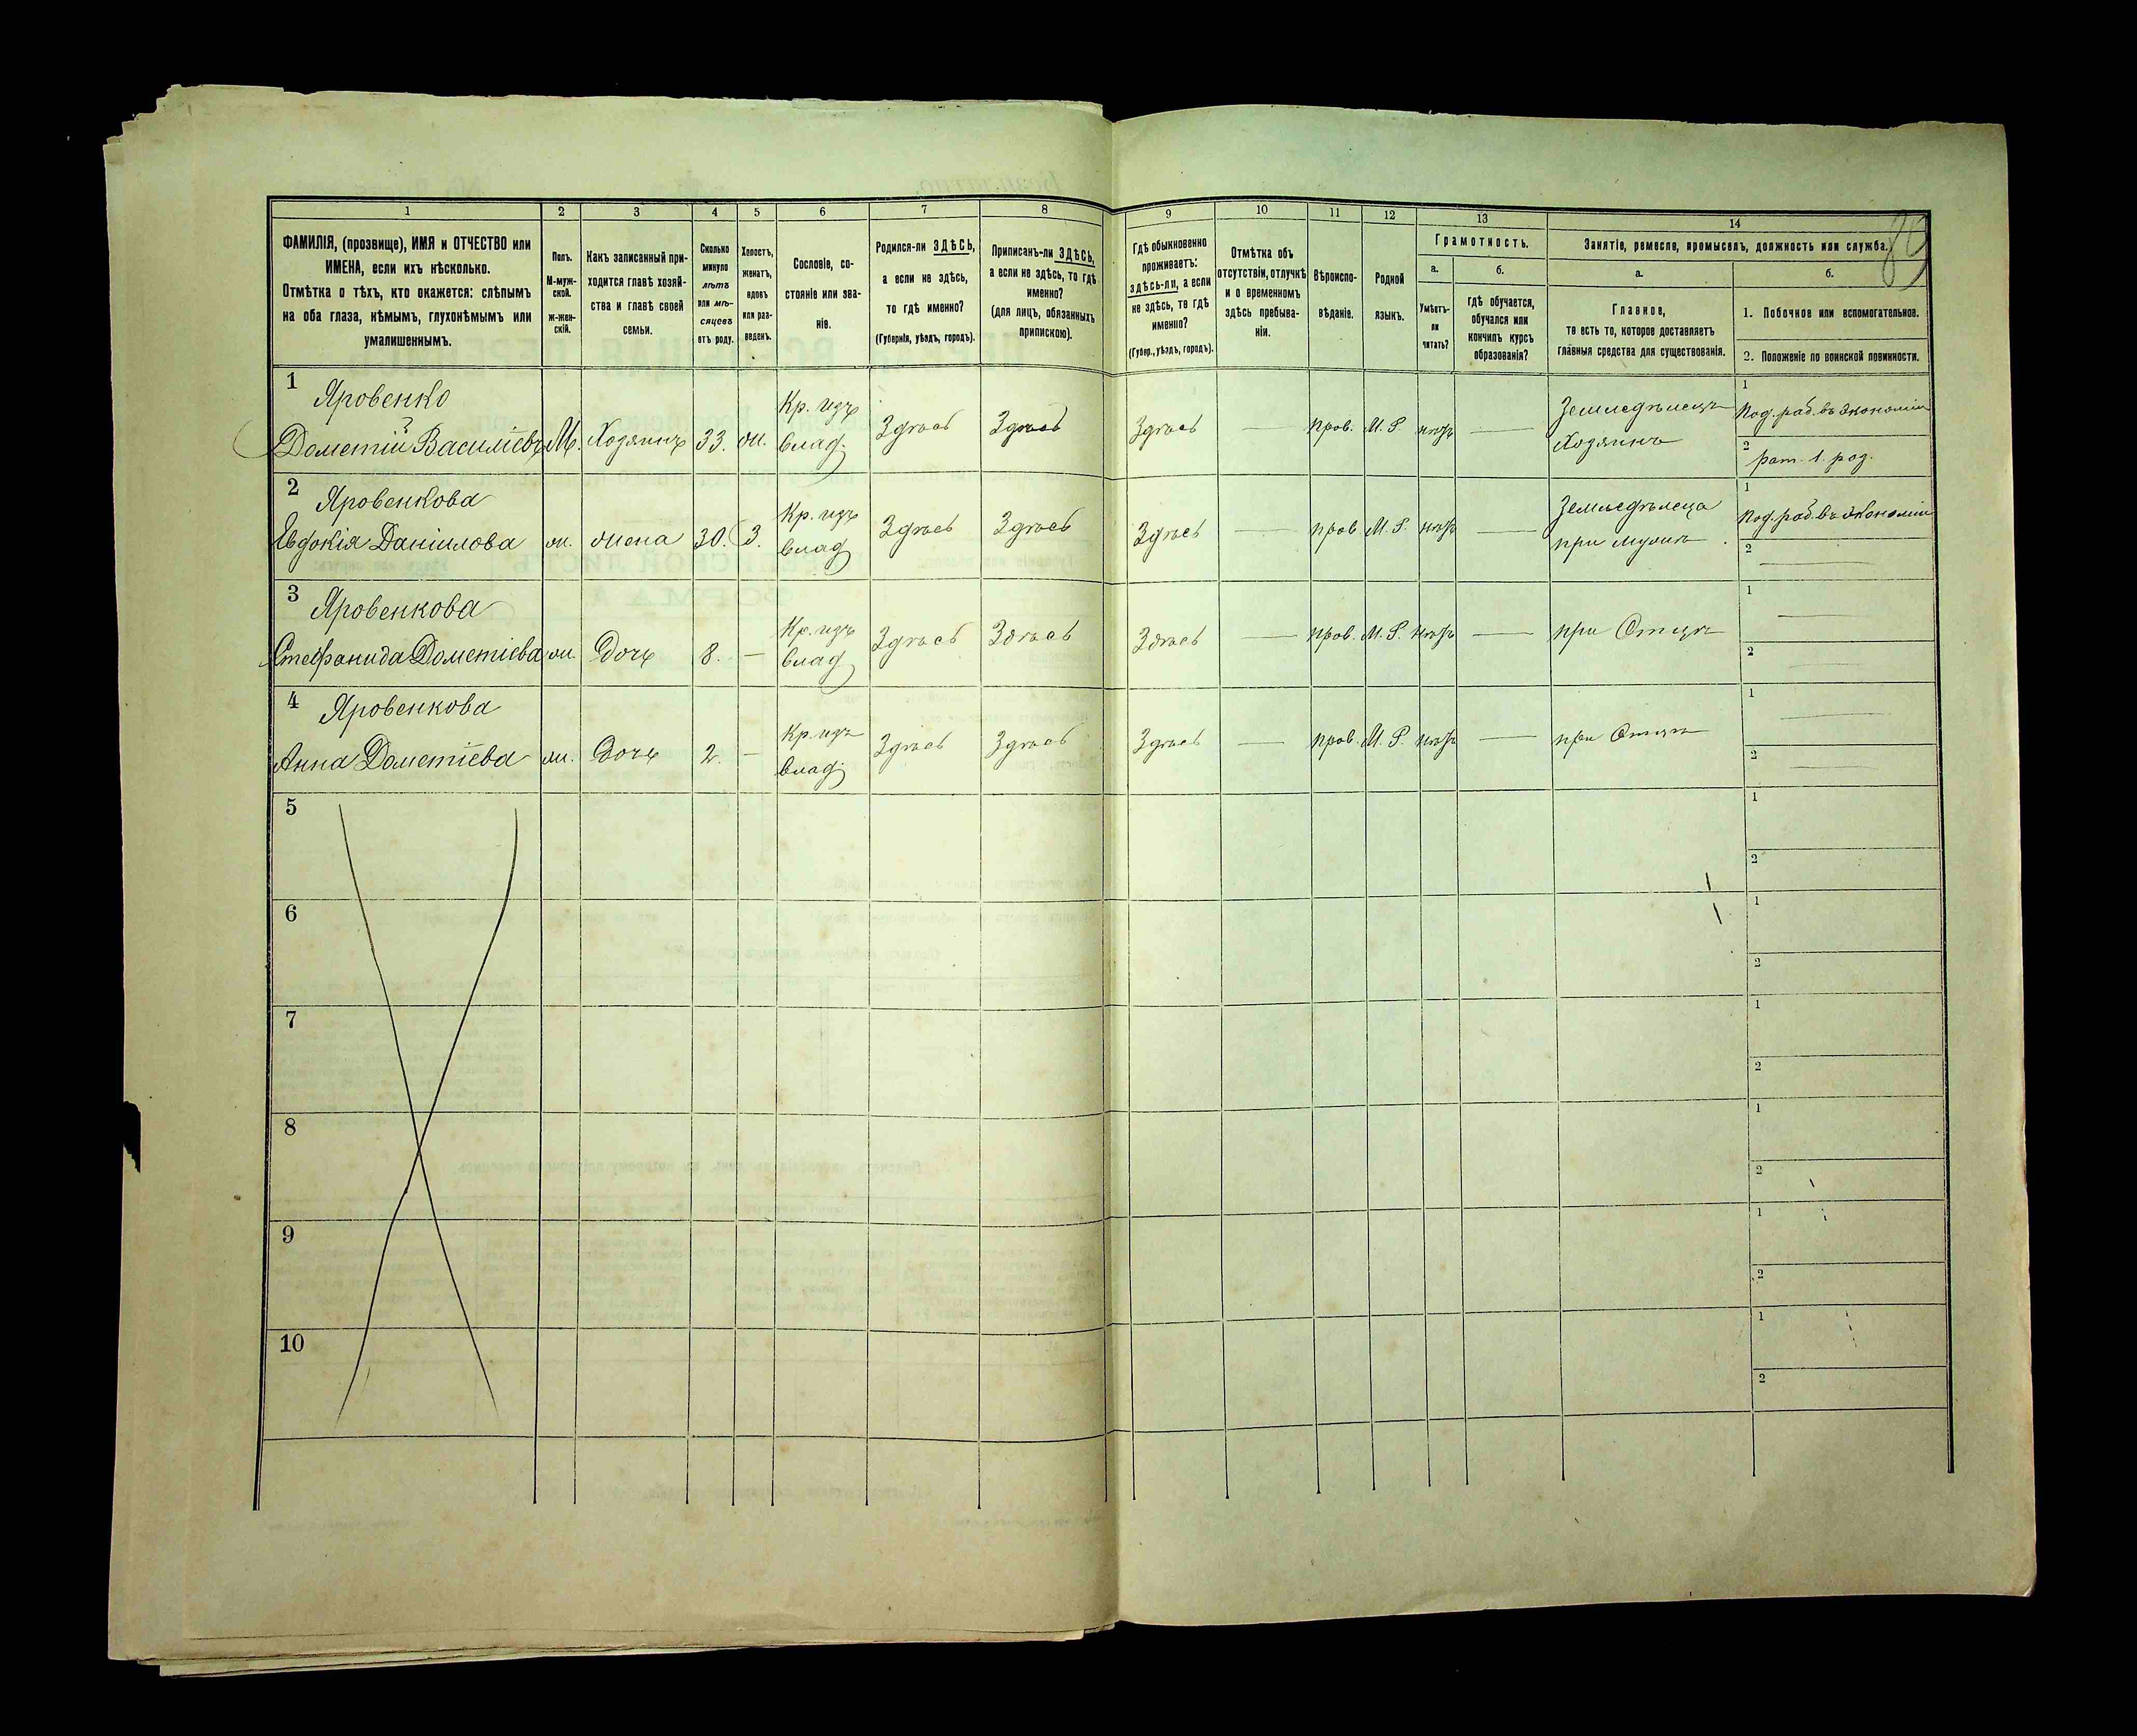 89
1 2 3 4 5 6 7 8 9 10 11 12 13 14
ФАМИЛІЯ, (прозвище), ИМЯ и ОТЧЕСТВО или
ИМЕНА, если ихъ нѣсколько.
Отмѣтка о тѣхъ, кто окажется: слѣпымъ
на оба глаза, нѣмымъ, глухонѣмымъ или
умалишеннымъ.
Полъ.
М-муж-
ской.
ж-жен-
скій.
Какъ записанный при-
ходится главѣ хозяй-
ства и главѣ своей
семьи.
Сколько
минуло
лѣтъ
или мѣ-
сяцевъ
отъ роду.
Холостъ,
женатъ,
вдовъ
или раз-
веденъ.
Сословіе, со-
стояніе или зва-
ніе.
Родился-ли ЗДѢСЬ,
а если не здѣсь,
то гдѣ именно?
(Губернія, уѣздъ, городъ).
Приписанъ-ли ЗДѢСЬ,
а если не здѣсь, то гдѣ
именно?
(для лицъ, обязанныхъ
припискою).
Гдѣ обыкновенно
проживаетъ:
здѣсь-ли, а если
не здѣсь, то гдѣ
именно?
(Губер., уѣздъ, городъ).
Отмѣтка объ
отсутствіи, отлучкѣ
и о временномъ
здѣсь пребыва-
ніи.
Вѣроиспо-
вѣданіе.
Родной
языкъ.
Грамотность.
а.
Умѣетъ-
ли
читать?
б.
гдѣ обучается,
обучался или
кончилъ курсъ
образованія?
Занятіе, ремесло, промыселъ, должность или служба.
а.
Главное,
то есть то, которое доставляетъ
главныя средства для существованія.
б.
1. Побочное или вспомогательное.
2. Положеніе по воинской повинности.
1 Яровенко Кр. изъ Земледѣлецъ 1 Под. раб. въ экономіи
Дометій Василіевъ М. Хозяинъ 33. ж. влад. Здѣсь Здѣсь Здѣсь — прав. М. Р. нѣтъ — Хозяинъ 2 рат. 1. раз.
2 Яровенкова Кр. изъ Земледѣлица 1 Под. раб. въ экономіи
Евдокія Даніилова ж. жена 30. З. влад Здѣсь Здѣсь Здѣсь — прав М. Р. нѣтъ — при мужѣ 2 —
3 Яровенкова Кр. изъ 1 —
Стефанида Дометіева ж. Дочь 8. — влад Здѣсь Здѣсь Здѣсь — прав. М. Р. нѣтъ — при Отцѣ 2 —
4 Яровенкова Кр. изъ 1 —
Анна Дометіева ж. Дочь 2. — влад. Здѣсь Здѣсь Здѣсь — прав. М. Р. нѣтъ — при Отцѣ 2 —
5 1
2
6 1
2
7 1
2
8 1
2
9 1
2
10 1
2